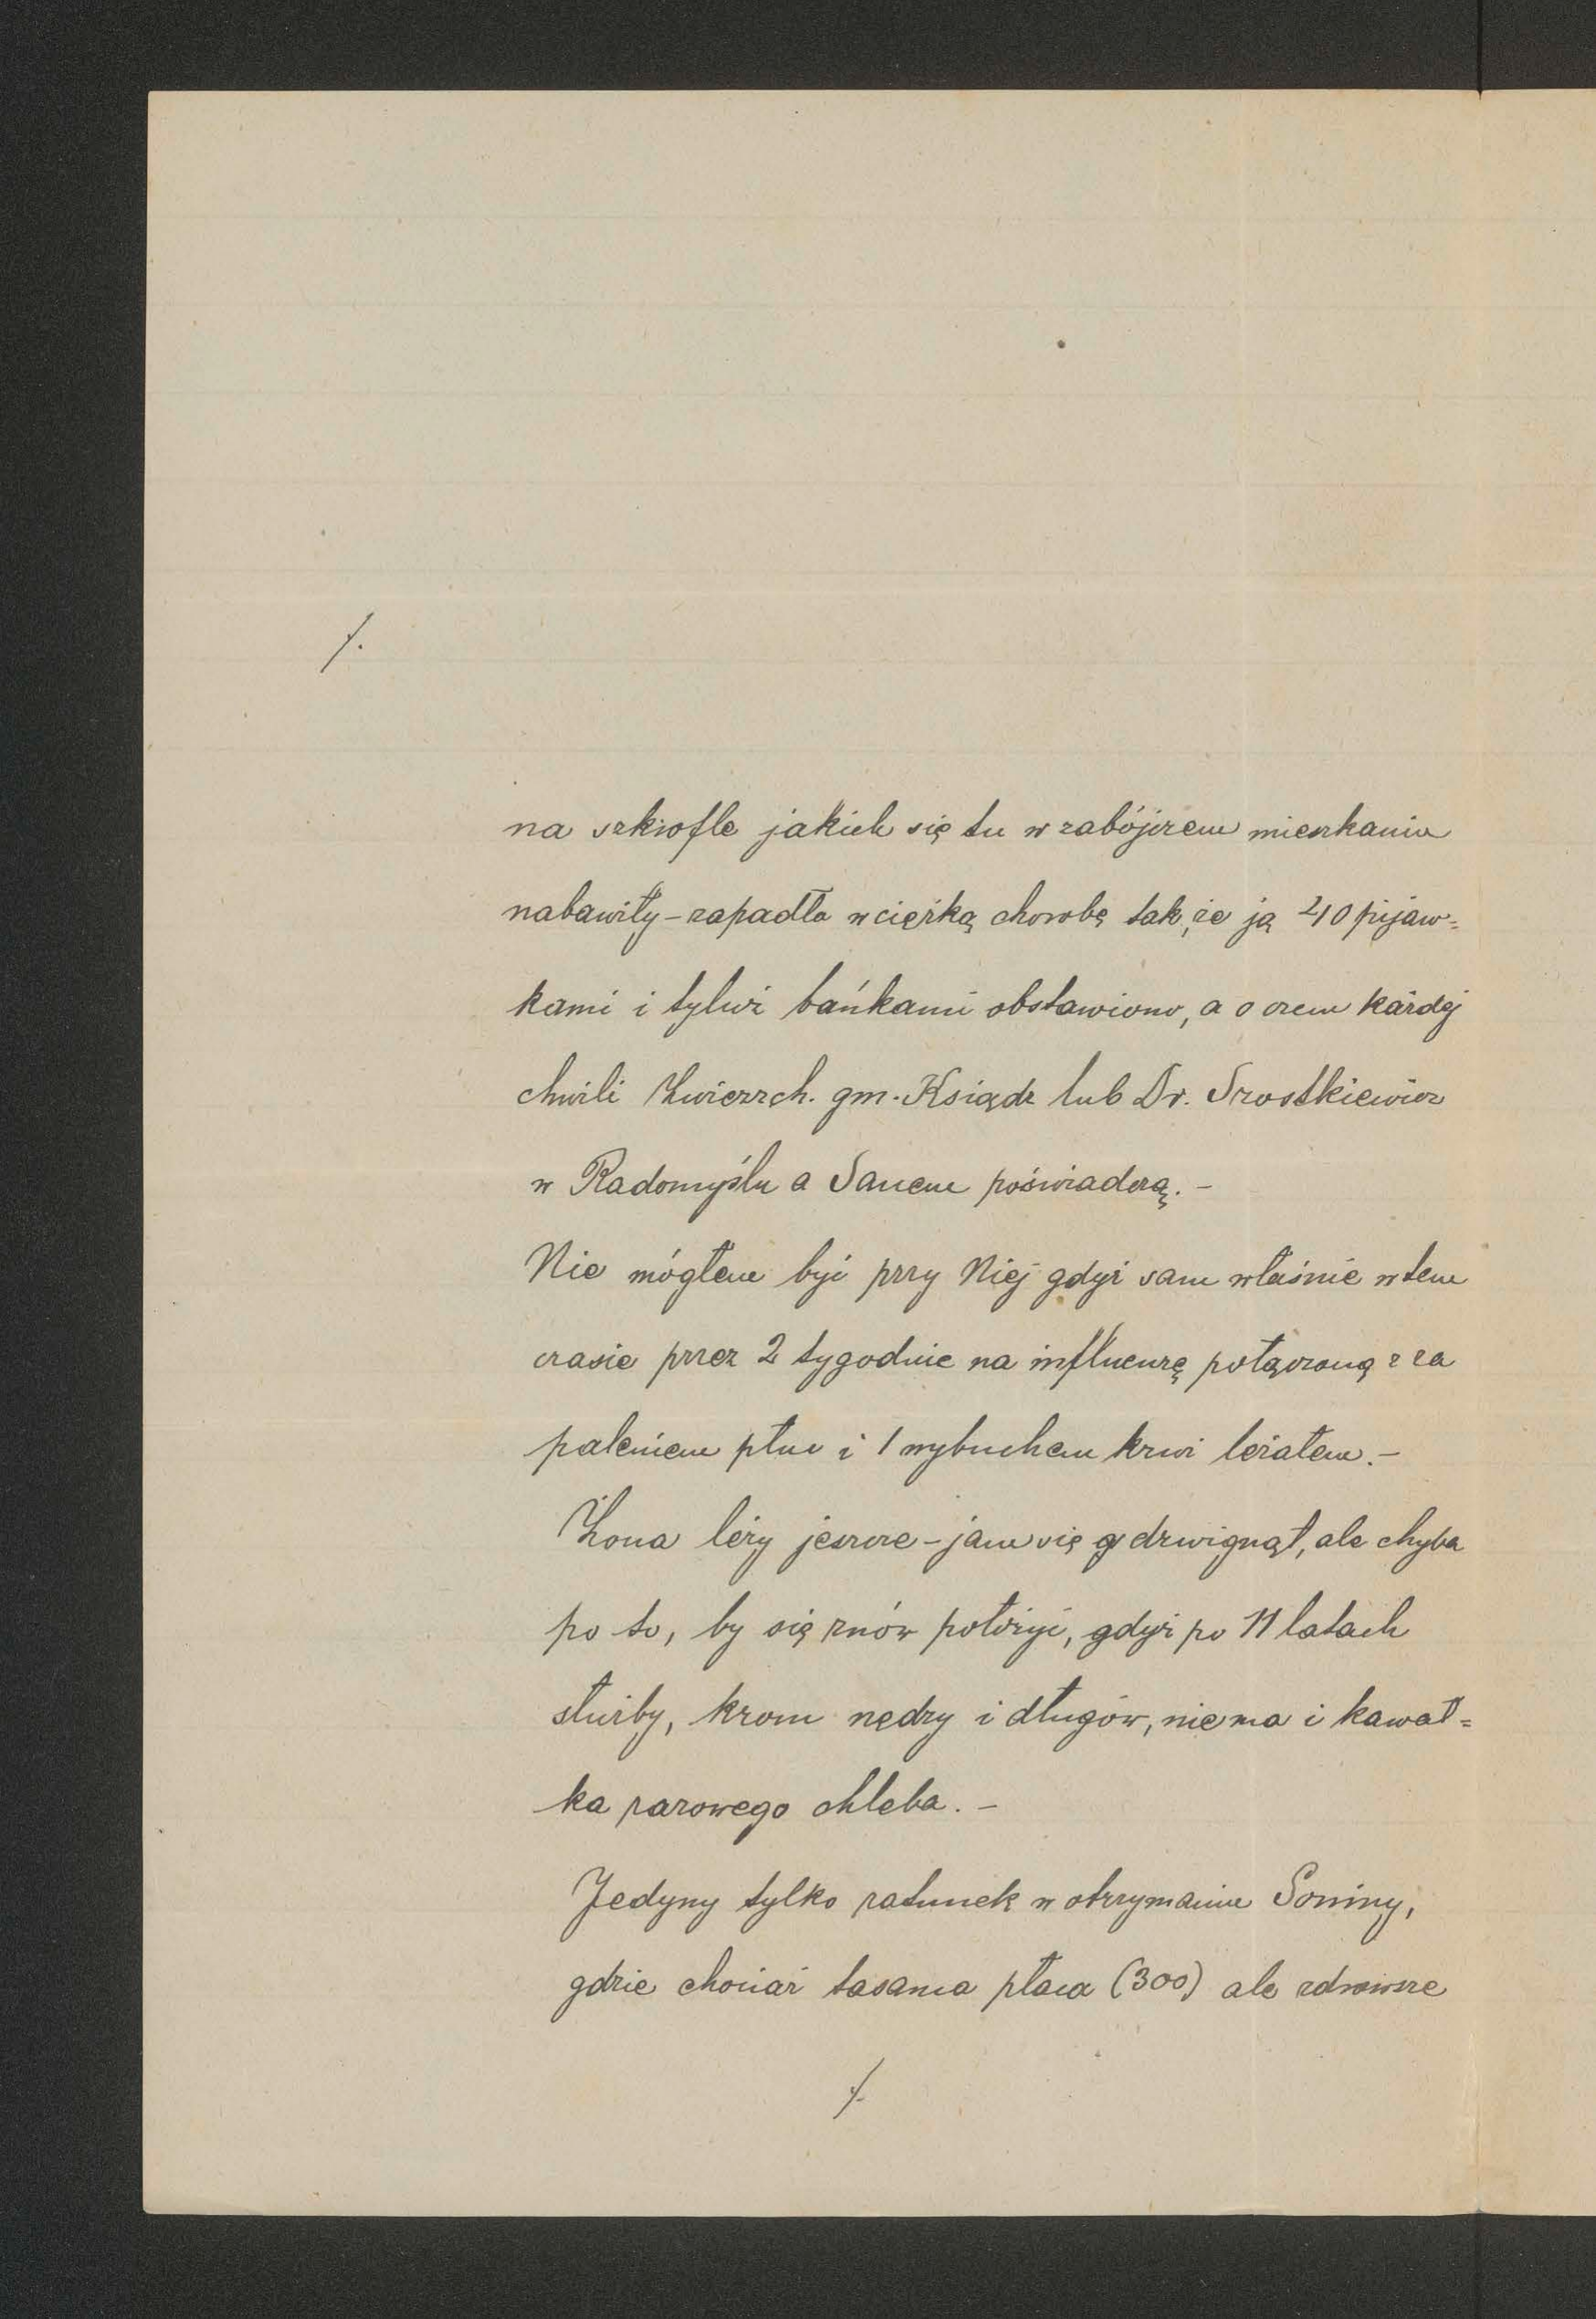 ⁒
na szkrofle jakich się tu w zabójczem mieszkaniu
nabawiły – zapadła w ciężką chorobę tak, że ją 40 pijaw=
kami i tyluż bańkami obstawiono, a o czem każdej
chwili Zwierzch. gm. Ksiądz lub Dr. Srostkiewicz
w Radomyślu a Sanem poświadczą. –
Nie mógłem być przy Niej gdyż sam właśnie w tem
czasie przez 2 tygodnie na influenzę połączoną z za
paleniem płuc i 1 wybuchem krwi leżałem. –
Żona leży jeszcze – jam się dzwignął, ale chyba
po to, by się znów położyć, gdyż po 11 latach
służby, krom nędzy i długów, niema i kawał=
ka razowego chleba. –
Jedyny tylko ratunek w otrzymaniu Soniny,
gdzie chociaż tasama płaca (300) ale zdrowsze
⁒